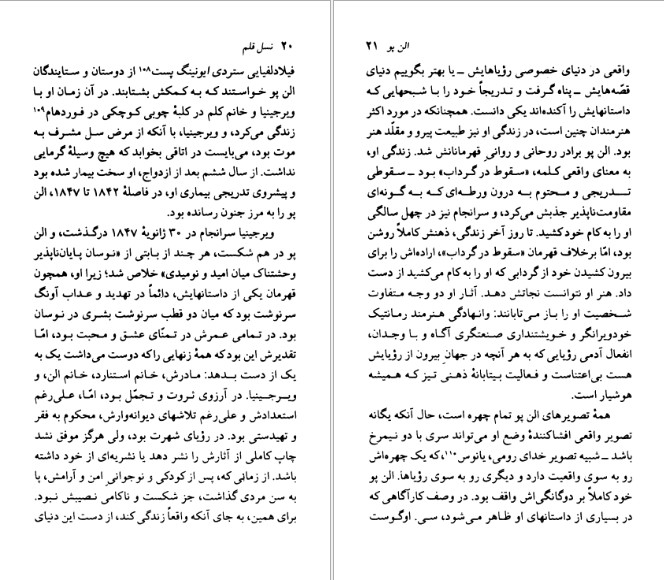 ۲۰ نسل قلم
فیلادلفیایی ستردی ایونینگ پست۱۰۸ از دوستان و ستایندگان
الن پو خواستند که به کمکش بشتابند. در آن زمان او با
ویرجینیا و خانم کلم در کلبهٔ چوبی کوچکی در فوردهام۱۰۹
زندگی می‌کرد، و ویرجینیا، با آنکه از مرض سل مشرف به
موت بود، می‌بایست در اتاقی بخوابد که هیچ وسیلهٔ گرمایی
نداشت. از سال ششم بعد از ازدواج، او سخت بیمار شده بود
و پیشروی تدریجی بیماری او، در فاصلهٔ ۱۸۴۲ تا ۱۸۴۷، الن
پو را به مرز جنون رسانده بود.
ویرجینیا سرانجام در ۳۰ ژانویهٔ ۱۸۴۷ درگذشت، و الن
پو در هم شکست، هر چند از بابتی از «نوسان پایان‌ناپذیر
وحشتناک میان امید و نومیدی» خلاص شد؛ زیرا او، همچون
قهرمان یکی از داستانهایش، دائماً در تهدید و عذاب آونگ
سرنوشت بود که میان دو قطب سرنوشت بشری در نوسان
بود. در تمامی عمرش در تمنّای عشق و محبت بود، امّا
تقدیرش این بود که همهٔ زنهایی را که دوست می‌داشت یک به
یک از دست بدهد: مادرش، خانم استنارد، خانم الن، و
ویرجینیا. در آرزوی ثروت و تجمّل بود، امّا، علی‌رغم
استعدادش و علی‌رغم تلاشهای دیوانه‌وارش، محکوم به فقر
و تهیدستی بود. در رؤیای شهرت بود، ولی هرگز موفق نشد
چاپ کاملی از آثارش را نشر دهد یا نشریه‌ای از خود داشته
باشد. از زمانی که، پس از کودکی و نوجوانی امن و آرامش، با
به سن مردی گذاشت، جز شکست و ناکامی نصیبش نبود.
برای همین، به جای آنکه واقعاً زندگی کند، از دست این دنیای
الن پو ۲۱
واقعی در دنیای خصوصی رؤیاهایش ــ یا بهتر بگوییم دنیای
قصّه‌هایش ــ پناه گرفت و تدریجاً خود را با شبحهایی که
داستانهایش را آکنده‌اند یکی دانست. همچنانکه در مورد اکثر
هنرمندان چنین است، در زندگی او نیز طبیعت پیرو و مقلّد هنر
بود. الن پو برادر روحانی و روانیِ قهرمانانش شد. زندگی او،
به معنای واقعی کلمه، «سقوط در گرداب» بود ــ سقوطی
تدریجی و محتوم به درون ورطه‌ای که به گونه‌ای
مقاومت‌ناپذیر جذبش می‌کرد، و سرانجام نیز در چهل سالگی
او را به کام خود کشید. تا روز آخر زندگی، ذهنش کاملاً روشن
بود، امّا برخلاف قهرمان «سقوط در گرداب»، اراده‌اش را برای
بیرون کشیدن خود از گردابی که او را به کام می‌کشید از دست
داد. هنر او نتوانست نجاتش دهد. آثار او دو وجه متفاوت
شخصیت او را باز می‌تابانند: وانهادگی هنرمند رمانتیک
خودویرانگر و خویشتنداری صنعتگری آگاه و با وجدان،
انفعال آدمی رؤیایی که به هر آنچه در جهانِ بیرون از رؤیایش
هست بی‌اعتناست و فعالیت بیتابانهٔ ذهنی تیز که همیشه
هوشیار است.
همهٔ تصویرهای الن پو تمام چهره است، حال آنکه یگانه
تصویر واقعی افشاکنندهٔ وضع او می‌تواند سری با دو نیمرخ
باشد ــ شبیه تصویر خدای رومی، یانوس۱۱۰، که یک چهره‌اش
رو به سوی واقعیت دارد و دیگری رو به سوی رؤیاها. الن پو
خود کاملاً بر دوگانگی‌اش واقف بود. در وصف کارآگاهی که
در بسیاری از داستانهای او ظاهر می‌شود، سی. اوگوست